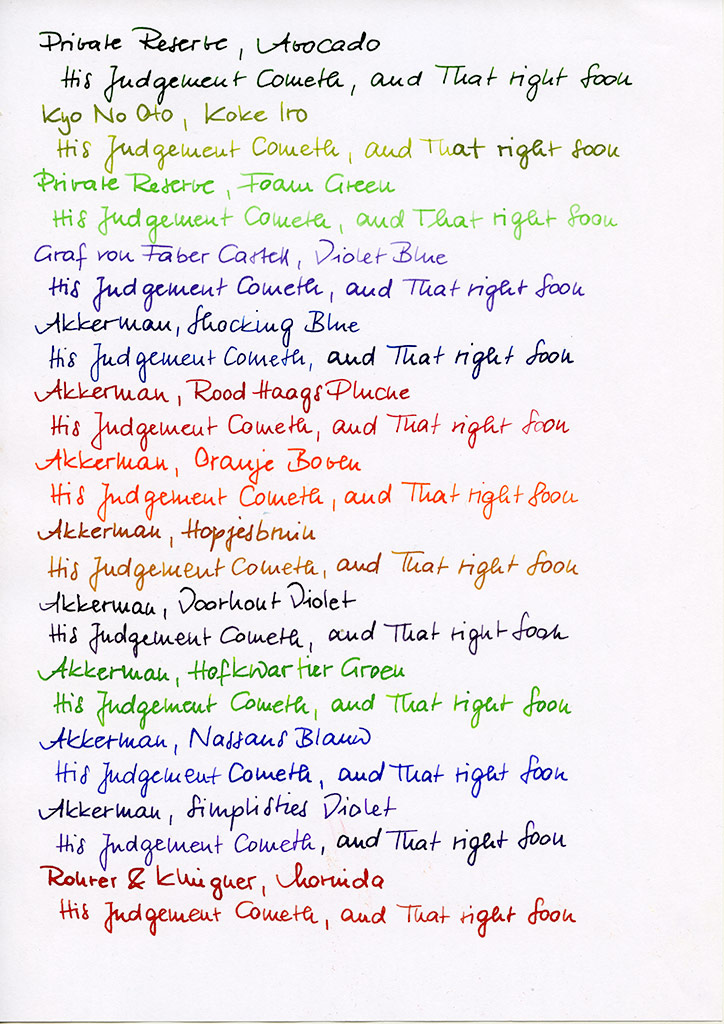 Private Reserve, Avocado
His Judgement Cometh, and That right Soon
Kyo No Oto, Koke Iro
His Judgement Cometh, and That right soon
Private Reserve, Foam Green
His Judgement Cometh, and That right Soon
Graf von Faber Castell, Violet Blue
His Judgement Cometh, and That right Soon
Akkerman, Shocking Blue
His Judgement Cometh, and That right Soon
Akkerman, Rood Haags Pluche
His Judgement Cometh, and That right Soon
Akkerman, Oranje Boven
His Judgement Cometh, and That right Soon
Akkerman, Hopjesbruin
His Judgement Cometh, and That right Soon
Akkerman, Voorhout Violet
His Judgement Cometh, and That right Soon
Akkerman, Hofkwartier Groen
His Judgement Cometh, and That right Soon
Akkerman, Nassaus Blauw
His Judgement Cometh, and That right Soon
Akkerman, Simplisties Violet
His Judgement Cometh, and That right Soon
Rohrer & Klingner, Morinda
His Judgement Cometh, and That right Soon